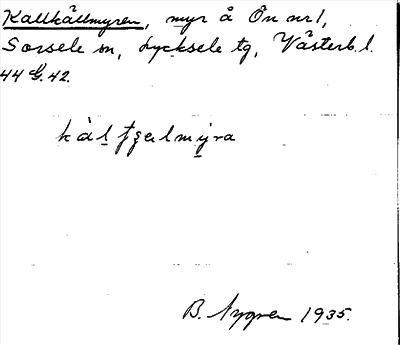 Kallkällmyren, myr å Ön nr 1,
Sorsele sn, Lycksele tg, Västerb. l.
44 G. 42.
B. Nygren 1935.